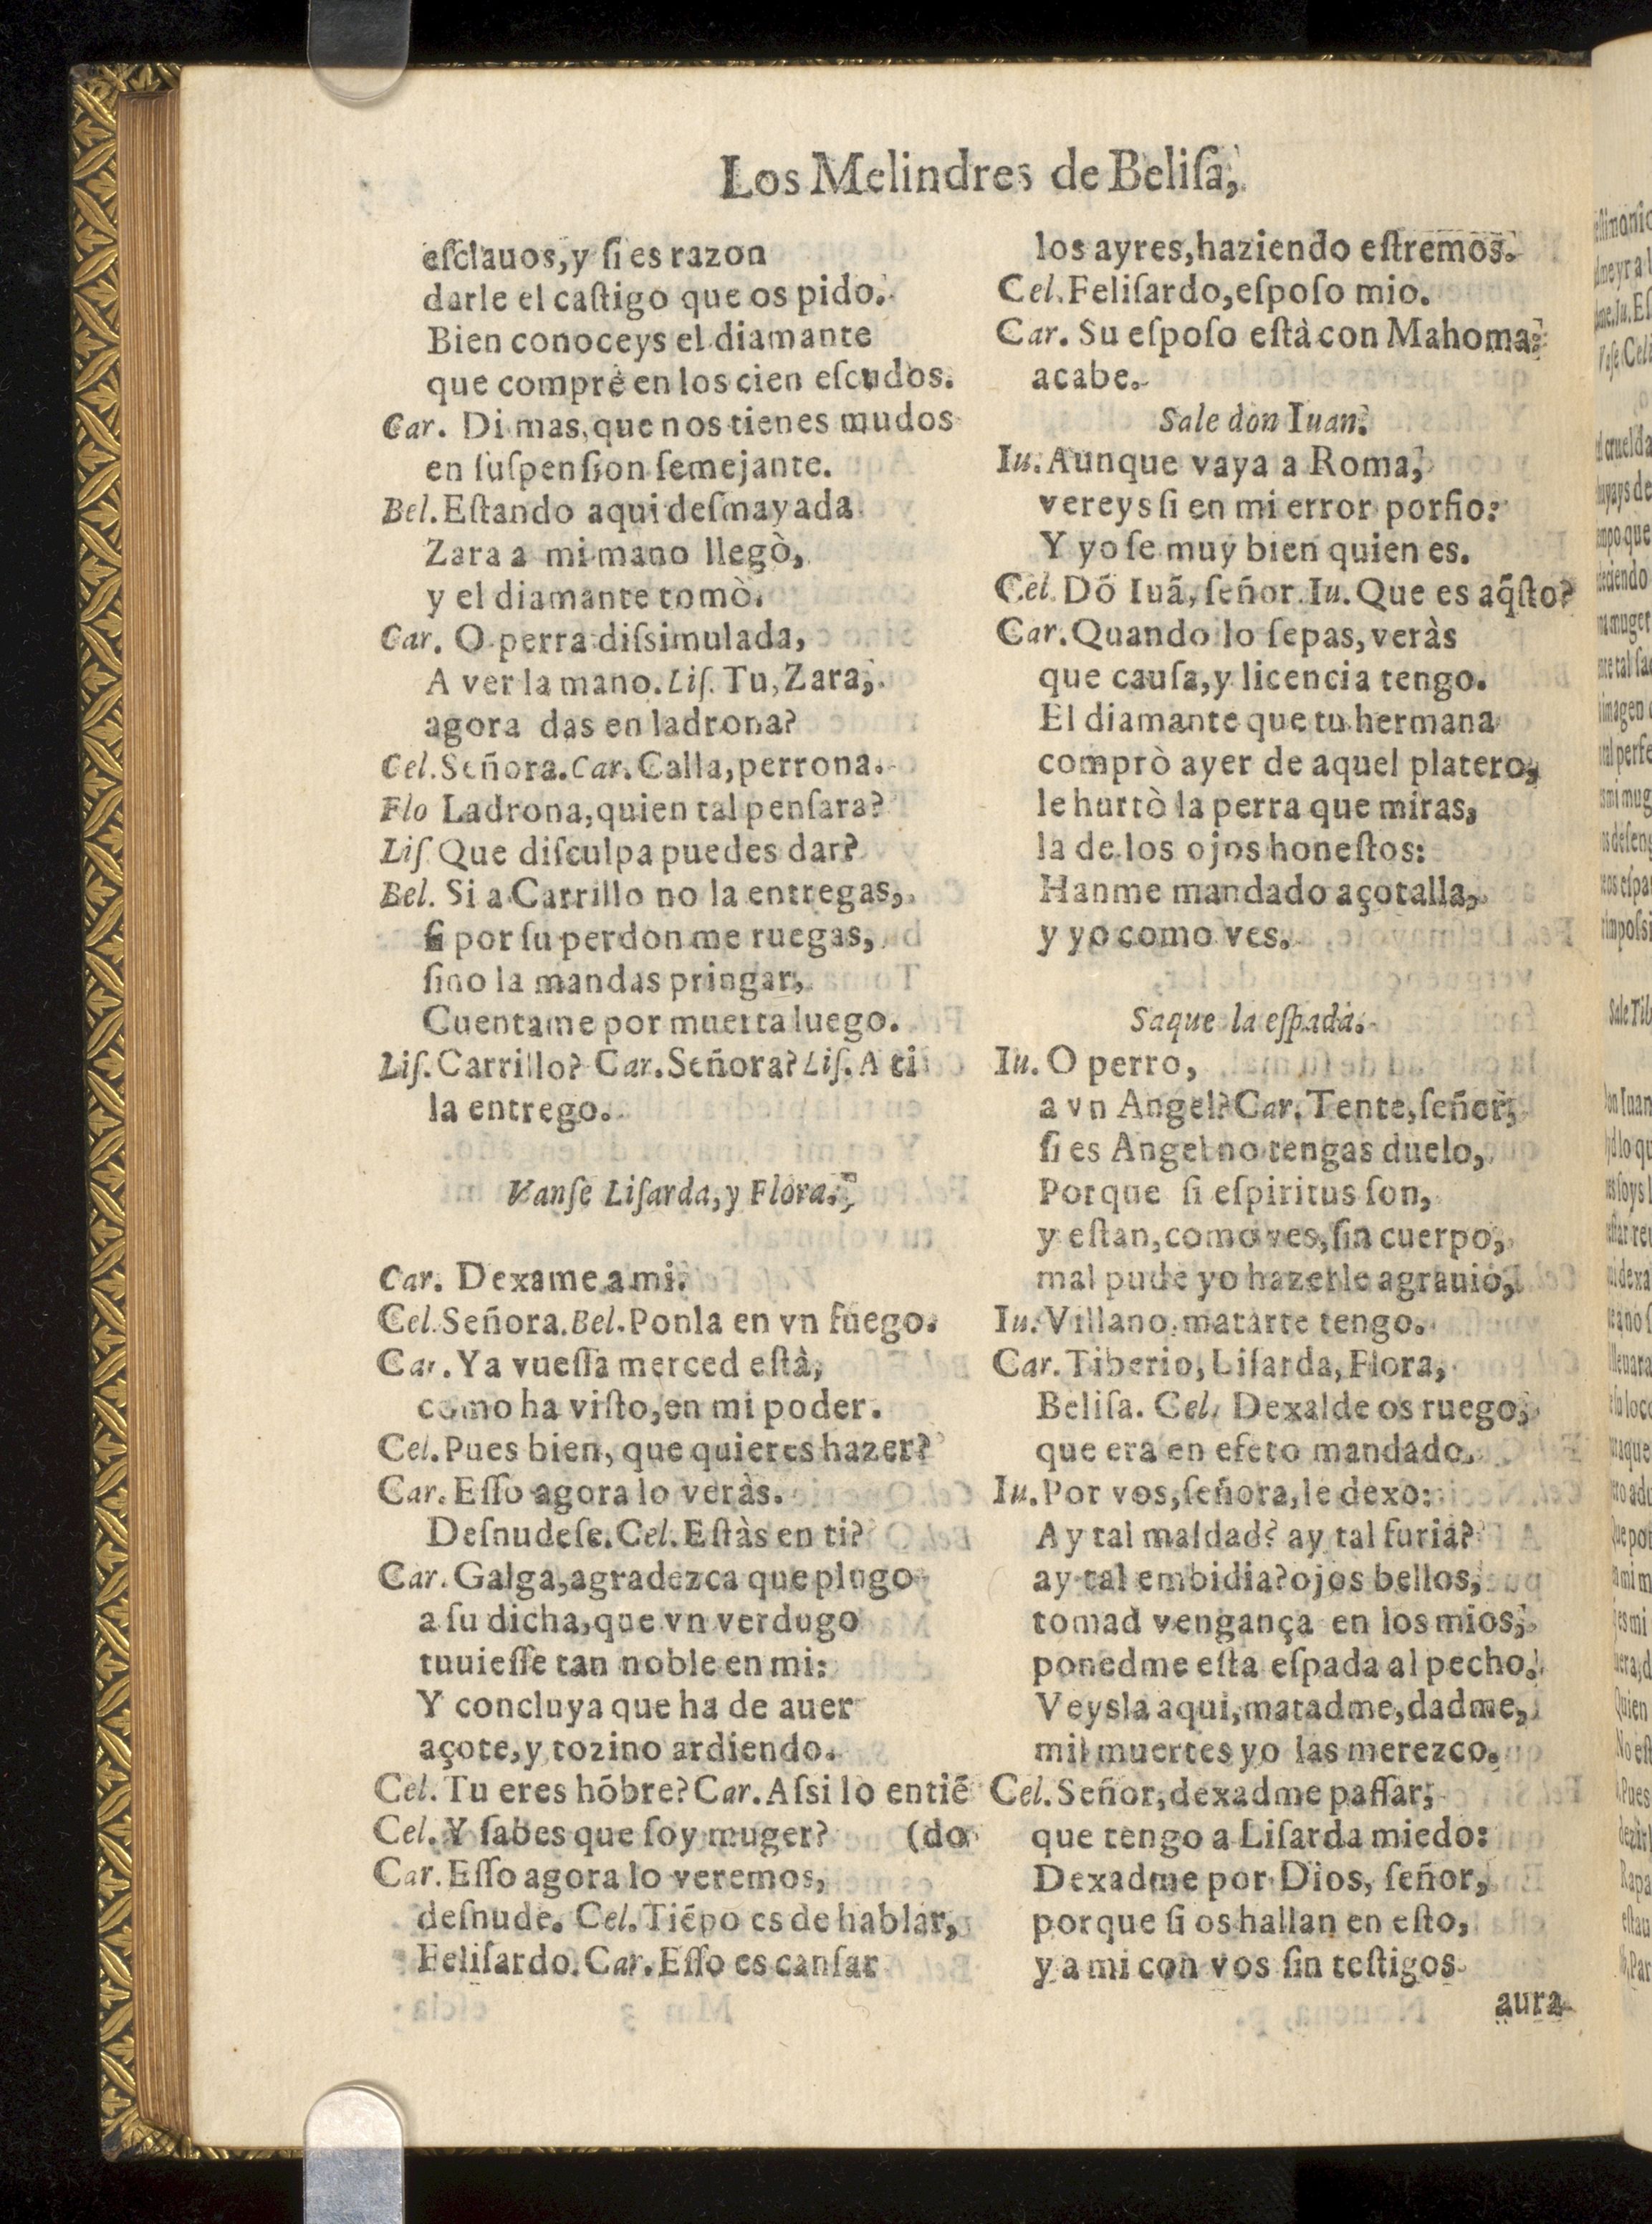 Los Melindres de Beliſa,
eſclauos, y ſi es razon
darle el caſtigo que os pido.
Bien conoceys el diamante
que comprè en los cien eſcudos.
Car. Di mas, que nos tienes mudos
en ſuſpenſion ſemejante.
Bel. Eſtando aqui deſmayada
Zara a mi mano llegò,
y el diamante tomò.
Car. O perra diſsimulada,
A ver la mano. Liſ. Tu, Zara,
agora das en ladrona?
Cel. Señora. Car. Calla, perrona.
Flo Ladrona, quien tal penſara?
Liſ Que diſculpa puedes dar?
Bel. Si a Carrillo no la entregas,
ſi por ſu perdon me ruegas,
ſino la mandas pringar,
Cuentame por muerta luego.
Liſ. Carrillo? Car. Señora? Liſ. A ti
la entrego.
Vanſe Liſarda, y Flora.
Car. Dexame a mi.
Cel. Señora. Bel. Ponla en vn fuego.
Car. Ya vueſſa merced eſtà,
como ha viſto, en mi poder.
Cel. Pues bien, que quieres hazer?
Car. Eſſo agora lo veràs.
Deſnudeſe. Cel. Eſtàs en ti?
Car. Galga, agradezca que plugo
a ſu dicha, que vn verdugo
tuuieſſe tan noble en mi:
Y concluya que ha de auer
açote, y tozino ardiendo.
Cel. Tu eres hõbre? Car. Aſsi lo entiẽ
Cel. Y ſabes que ſoy muger? (do
Car. Eſſo agora lo veremos,
deſnude. Cel. Tiẽpo es de hablar,
Feliſardo. Car. Eſſo es canſar
los ayres, haziendo eſtremos.
Cel. Feliſardo, eſpoſo mio.
Car. Su eſpoſo eſtà con Mahoma:
acabe.
Sale don Iuan.
Iu. Aunque vaya a Roma,
vereys ſi en mi error porfio:
Y yo ſe muy bien quien es.
Cel. Dõ Iuã, ſeñor. Iu. Que es aq̃ſto?
Car. Quando lo ſepas, veràs
que cauſa, y licencia tengo.
El diamante que tu hermana
comprò ayer de aquel platero,
le hurtò la perra que miras,
la de los ojos honeſtos:
Hanme mandado açotalla,
y yo como ves.
Saque la eſpada.
Iu. O perro,
a vn Angel? Car. Tente, ſeñor,
ſi es Angel no tengas duelo,
Porque ſi eſpiritus ſon,
y eſtan, como ves, ſin cuerpo,
mal pude yo hazerle agrauio,
Iu. Villano, matarte tengo.
Car. Tiberio, Liſarda, Flora,
Beliſa. Cel. Dexalde os ruego,
que era en efeto mandado.
Iu. Por vos, ſeñora, le dexo:
Ay tal maldad? ay tal furia?
ay tal embidia? ojos bellos,
tomad vengança en los mios,
ponedme eſta eſpada al pecho.
Veysla aqui, matadme, dadme,
mil muertes yo las merezco.
Cel. Señor, dexadme paſſar,
que tengo a Liſarda miedo:
Dexadme por Dios, ſeñor,
porque ſi os hallan en eſto,
y a mi con vos ſin teſtigos
aura